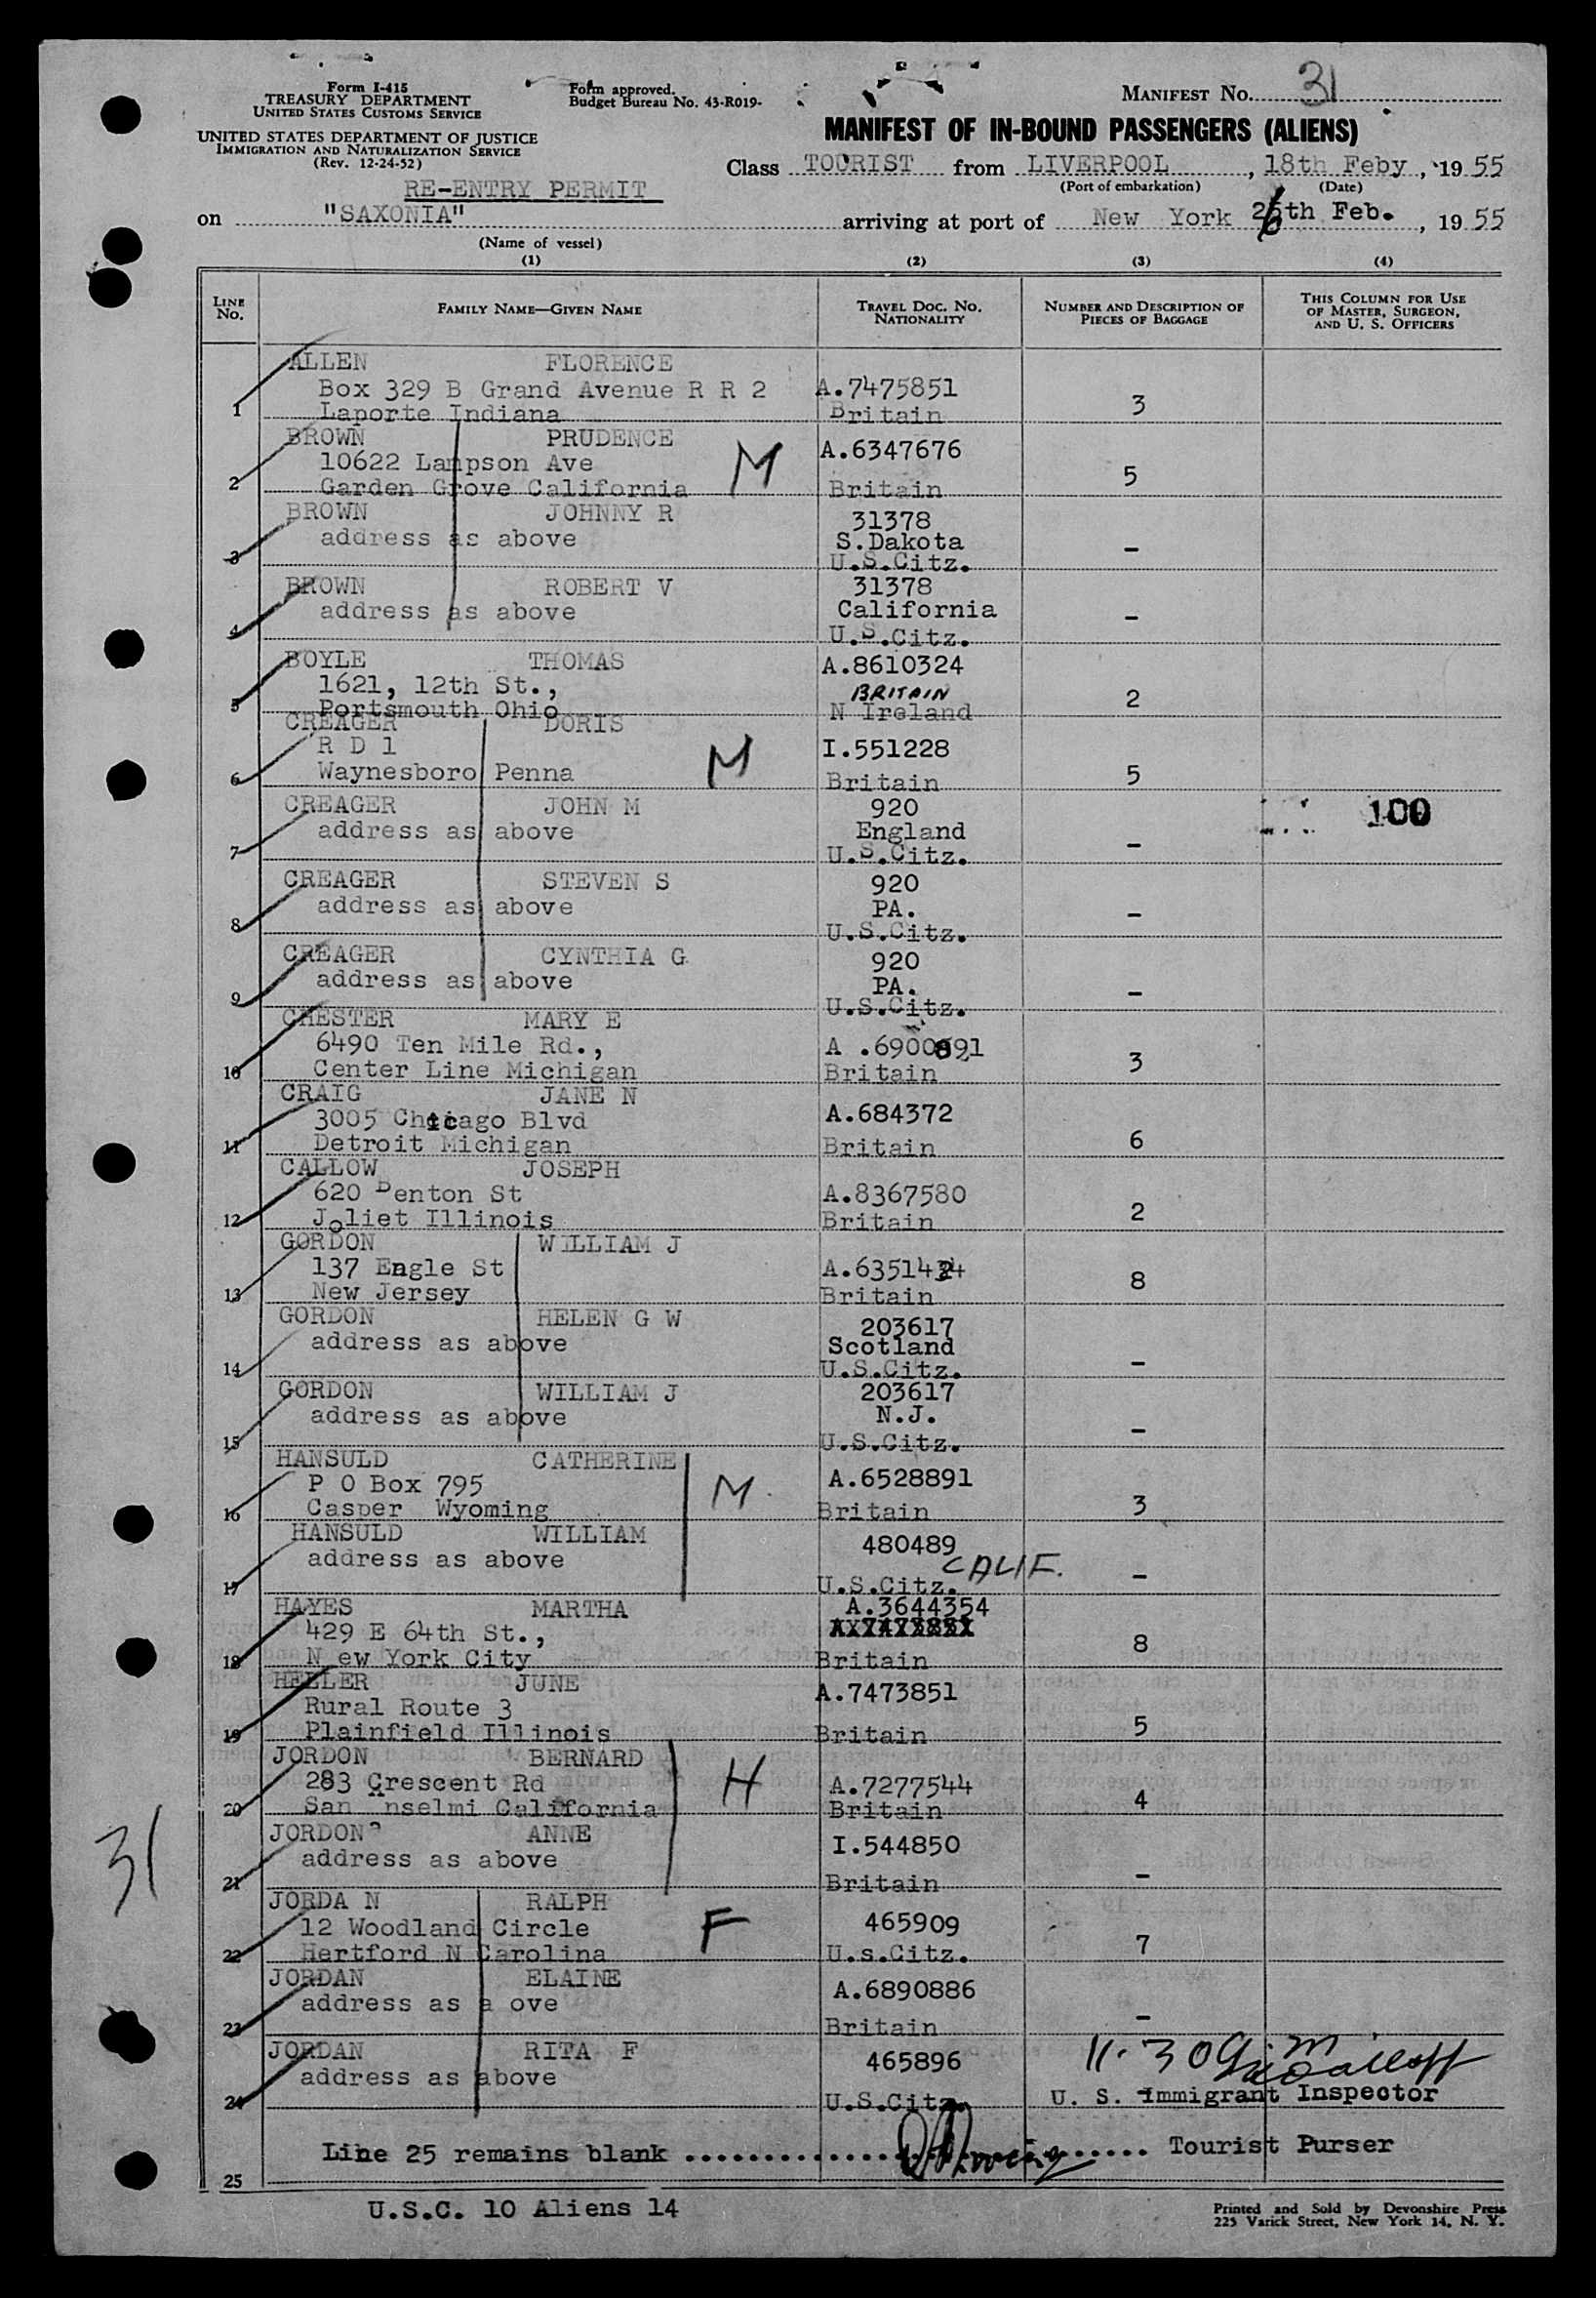 Form I-415
TREASURY DEPARTMENT
UNITED STATES CUSTOMS SERVICE
UNITED STATES DEPARTMENT OF JUSTICE
IMMIGRATION AND NATURALIZATION SERVICE
(Rev. 12-24-52)
Form approved.
Budget Bureau No. 43-R019-
MANIFEST NO. 31
MANIFEST OF IN-BOUND PASSENGERS (ALIENS)
Class TOURIST from LIVERPOOL, 18th Feby, 1955
(Port of embarkation) (Date)
RE-ENTRY PERMIT
on "SAXONIA" arriving at port of New York 26th Feb., 1955
(Name of vessel)
(1) (2) (3) (4)
LINE NO.
FAMILY NAME—GIVEN NAME
TRAVEL DOC. NO. NATIONALITY
NUMBER AND DESCRIPTION OF PIECES OF BAGGAGE
THIS COLUMN FOR USE OF MASTER, SURGEON, AND U. S. OFFICERS
ALLEN FLORENCE
Box 329 B Grand Avenue R R 2 A.7475851
1 Laporte Indiana Britain 3
BROWN PRUDENCE
10622 Lampson Ave M A.6347676
2 Garden Grove California Britain 5
BROWN JOHNNY R 31378
address as above S.Dakota
3 U.S.Citz. -
BROWN ROBERT V 31378
address as above California
4 U.S.Citz. -
BOYLE THOMAS A.8610324
1621, 12th St., BRITAIN
5 Portsmouth Ohio N Ireland 2
CREAGER DORIS
R D 1 I.551228
6 Waynesboro Penna M Britain 5
CREAGER JOHN M 920 100
address as above England
7 U.S.Citz. -
CREAGER STEVEN S 920
address as above PA.
8 U.S.Citz. -
CREAGER CYNTHIA G 920
address as above PA.
9 U.S.Citz. -
CHESTER MARY E
6490 Ten Mile Rd., A .6900891
10 Center Line Michigan Britain 3
CRAIG JANE N
3005 Chicago Blvd A.684372
11 Detroit Michigan Britain 6
CALLOW JOSEPH
620 Benton St A.8367580
12 Joliet Illinois Britain 2
GORDON WILLIAM J
137 Engle St
13 New Jersey Britain 8
GORDON HELEN G W 203617
address as above Scotland
14 U.S.Citz. -
GORDON WILLIAM J 203617
address as above N.J.
15 U.S.Citz. -
HANSULD CATHERINE
P O Box 795 M. A.6528891
16 Casper Wyoming Britain 3
HANSULD WILLIAM 480489
address as above CALIF.
17 U.S.Citz. -
HAYES MARTHA A.3644354
429 E 64th St.,
18 N ew York City Britain 8
HELLER JUNE A.7473851
Rural Route 3
19 Plainfield Illinois Britain 5
JORDON BERNARD
283 Crescent Rd H A.7277544
20 San Anselmi California Britain 4
JORDON ANNE I.544850
address as above
21 Britain -
JORDA N RALPH
12 Woodland Circle F 465909
22 Hertford N Carolina U.s.Citz. 7
JORDAN ELAINE A.6890886
address as a ove
23 Britain -
JORDAN RITA F 465896
address as above 11.30
24 U.S.Citz. U. S. Immigrant Inspector
Line 25 remains blank .................... Tourist Purser
25
U.S.C. 10 Aliens 14
31
Printed and Sold by Devonshire Press
225 Varick Street, New York 14, N. Y.